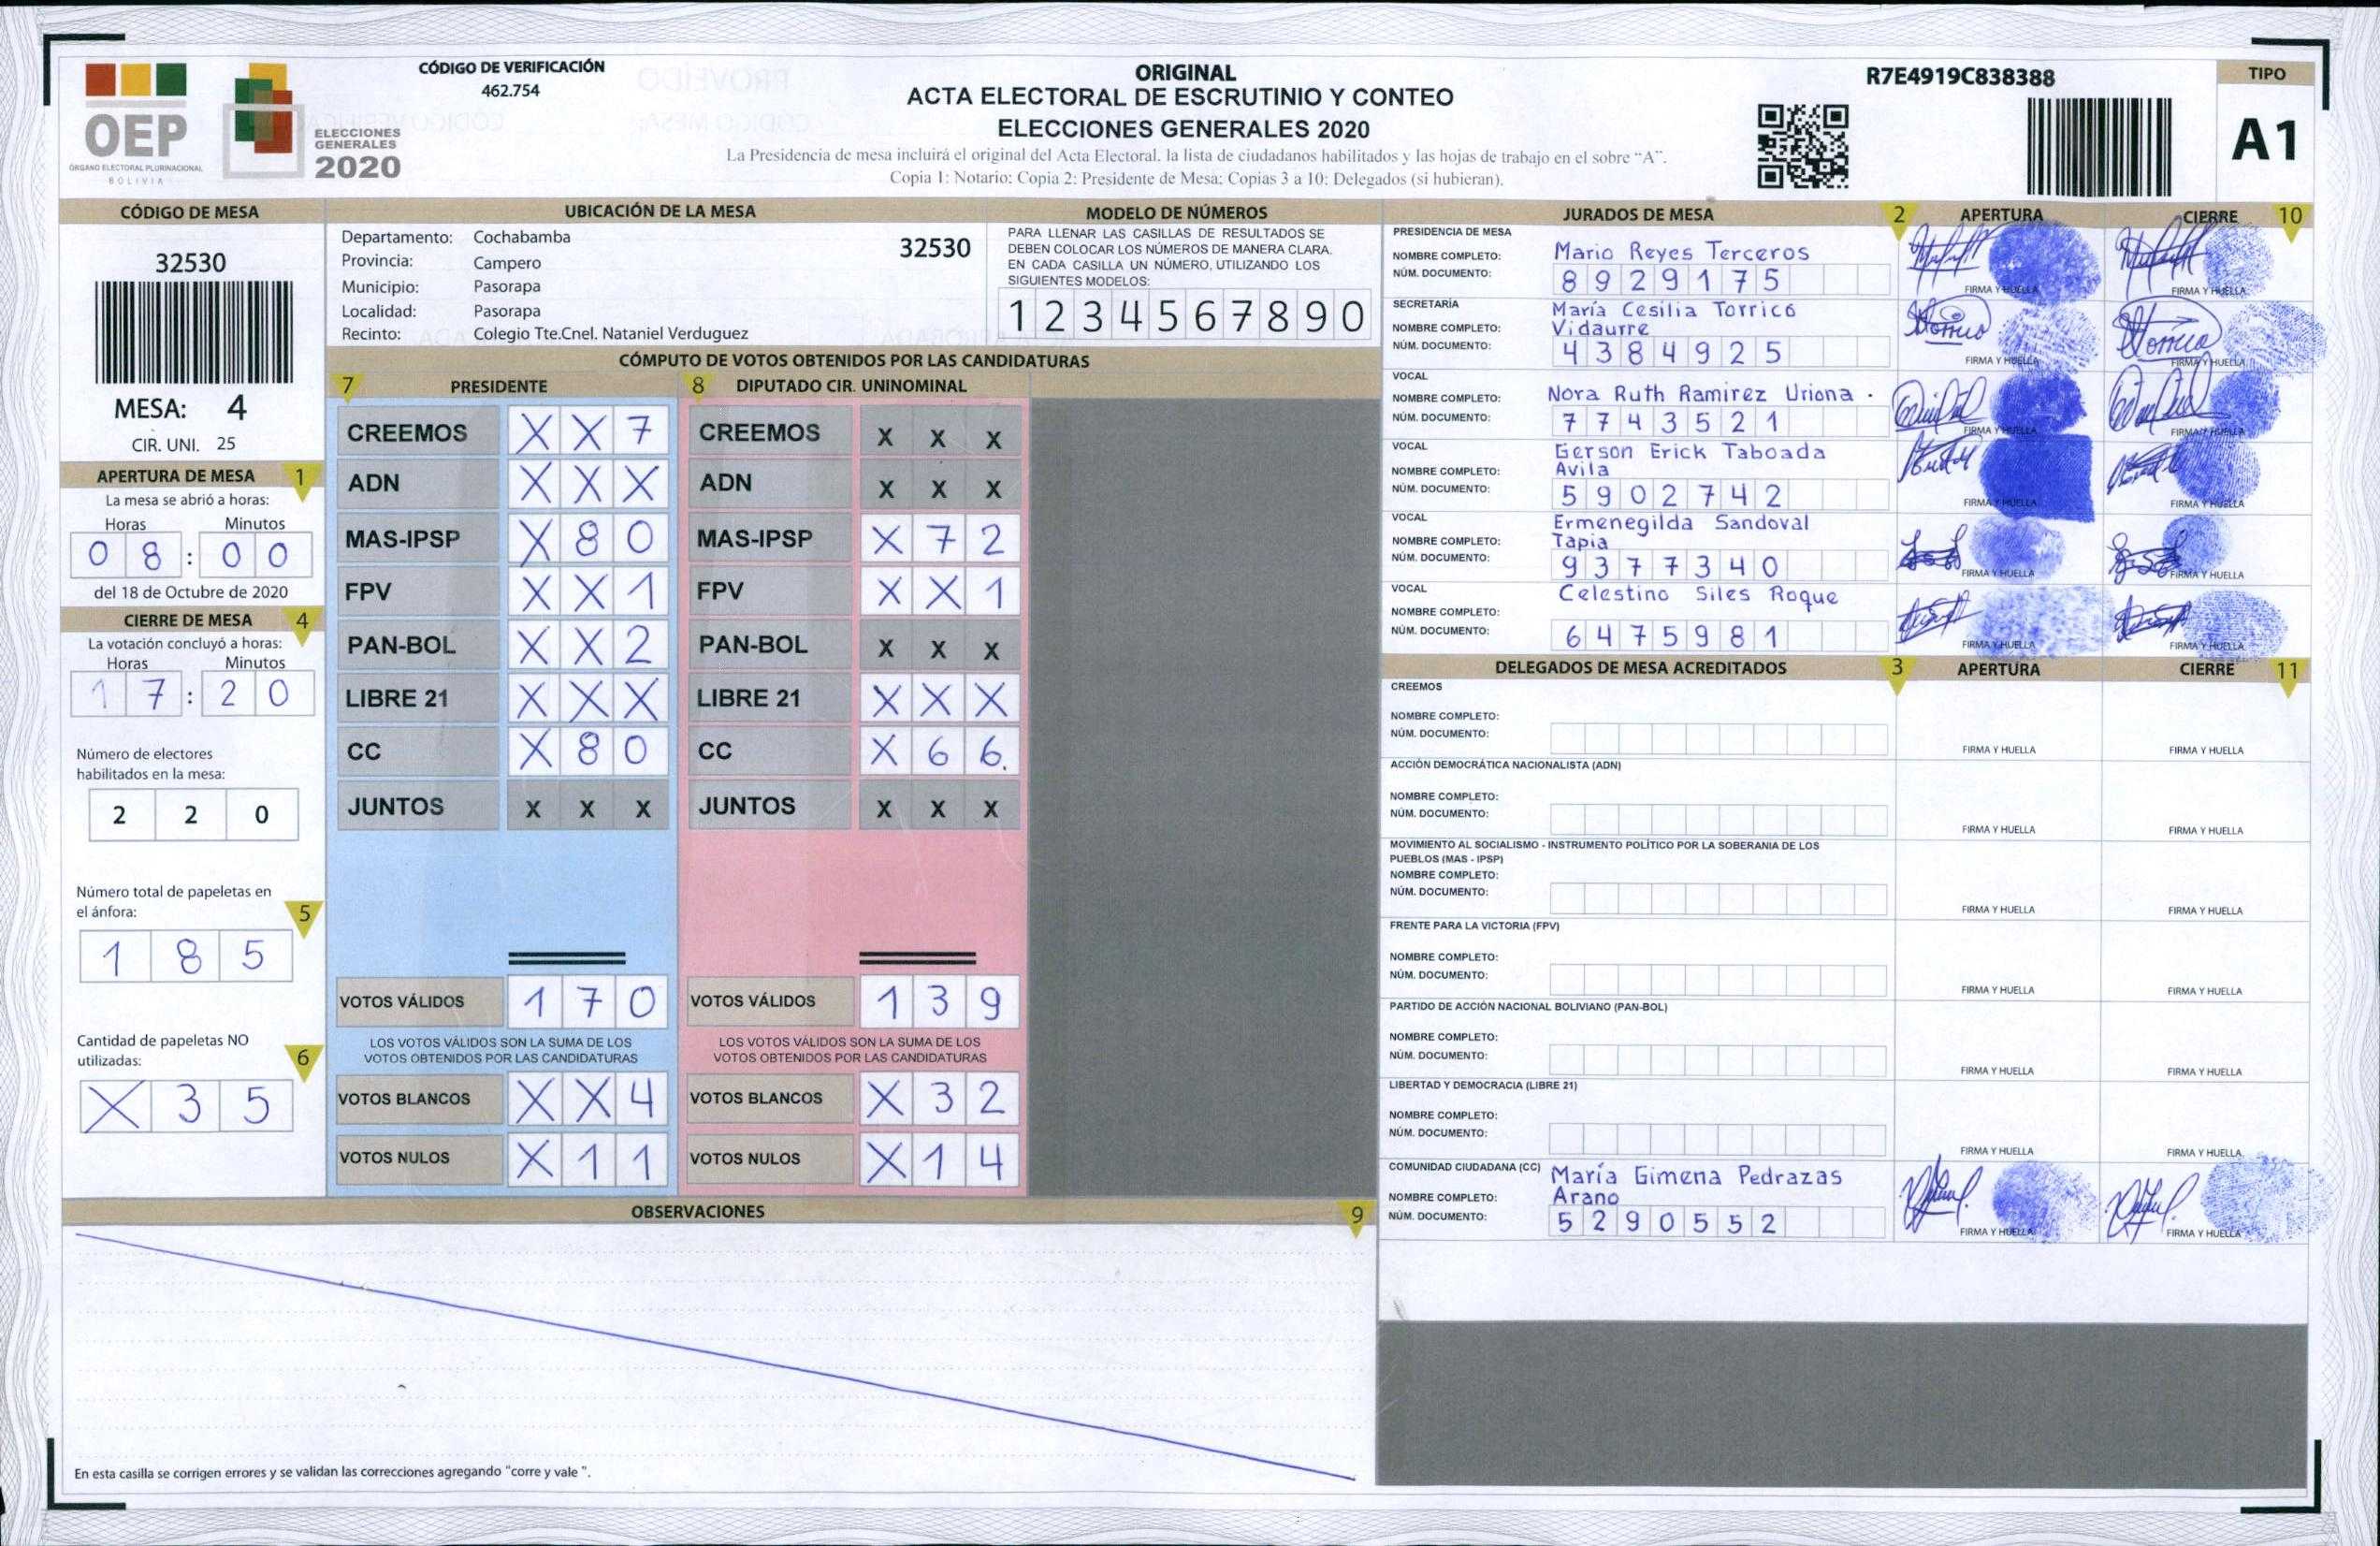 OEP
ÓRGANO ELECTORAL PLURINACIONAL
BOLIVIA
ELECCIONES
GENERALES
2020
CÓDIGO DE VERIFICACIÓN
462.754
ORIGINAL
ACTA ELECTORAL DE ESCRUTINIO Y CONTEO
ELECCIONES GENERALES 2020
La Presidencia de mesa incluirá el original del Acta Electoral, la lista de ciudadanos habilitados y las hojas de trabajo en el sobre "A".
Copia 1: Notario; Copia 2: Presidente de Mesa; Copias 3 a 10: Delegados (si hubieran).
R7E4919C838388
TIPO
A1
CÓDIGO DE MESA
32530
MESA: 4
CIR. UNI. 25
APERTURA DE MESA 1
La mesa se abrió a horas:
Horas Minutos
0 8 : 0 0
del 18 de Octubre de 2020
CIERRE DE MESA 4
La votación concluyó a horas:
Horas Minutos
1 7 : 2 0
Número de electores
habilitados en la mesa:
2 2 0
Número total de papeletas en
el ánfora: 5
1 8 5
Cantidad de papeletas NO
utilizadas: 6
X 3 5
UBICACIÓN DE LA MESA
Departamento: Cochabamba 32530
Provincia: Campero
Municipio: Pasorapa
Localidad: Pasorapa
Recinto: Colegio Tte.Cnel. Nataniel Verduguez
MODELO DE NÚMEROS
PARA LLENAR LAS CASILLAS DE RESULTADOS SE
DEBEN COLOCAR LOS NÚMEROS DE MANERA CLARA.
EN CADA CASILLA UN NÚMERO, UTILIZANDO LOS
SIGUIENTES MODELOS:
1 2 3 4 5 6 7 8 9 0
CÓMPUTO DE VOTOS OBTENIDOS POR LAS CANDIDATURAS
7 PRESIDENTE 8 DIPUTADO CIR. UNINOMINAL
CREEMOS X X 7 CREEMOS X X X
ADN X X X ADN X X X
MAS-IPSP X 8 0 MAS-IPSP X 7 2
FPV X X 1 FPV X X 1
PAN-BOL X X 2 PAN-BOL X X X
LIBRE 21 X X X LIBRE 21 X X X
CC X 8 0 CC X 6 6.
JUNTOS X X X JUNTOS X X X
VOTOS VÁLIDOS 1 7 0 VOTOS VÁLIDOS 1 3 9
LOS VOTOS VÁLIDOS SON LA SUMA DE LOS LOS VOTOS VÁLIDOS SON LA SUMA DE LOS
VOTOS OBTENIDOS POR LAS CANDIDATURAS VOTOS OBTENIDOS POR LAS CANDIDATURAS
VOTOS BLANCOS X X 4 VOTOS BLANCOS X 3 2
VOTOS NULOS X 1 1 VOTOS NULOS X 1 4
OBSERVACIONES 9
En esta casilla se corrigen errores y se validan las correcciones agregando "corre y vale ".
JURADOS DE MESA 2 APERTURA CIERRE 10
PRESIDENCIA DE MESA
NOMBRE COMPLETO: Mario Reyes Terceros
NÚM. DOCUMENTO: 8 9 2 9 1 7 5
FIRMA Y HUELLA FIRMA Y HUELLA
SECRETARÍA
NOMBRE COMPLETO: María Cesilia Torrico
Vidaurre
NÚM. DOCUMENTO: 4 3 8 4 9 2 5
FIRMA Y HUELLA FIRMA Y HUELLA
VOCAL
NOMBRE COMPLETO: Nora Ruth Ramirez Uriona
NÚM. DOCUMENTO: 7 7 4 3 5 2 1
FIRMA Y HUELLA FIRMA Y HUELLA
VOCAL
NOMBRE COMPLETO: Gerson Erick Taboada
Avila
NÚM. DOCUMENTO: 5 9 0 2 7 4 2
FIRMA Y HUELLA FIRMA Y HUELLA
VOCAL
NOMBRE COMPLETO: Ermenegilda Sandoval
Tapia
NÚM. DOCUMENTO: 9 3 7 7 3 4 0
FIRMA Y HUELLA FIRMA Y HUELLA
VOCAL
NOMBRE COMPLETO: Celestino Siles Roque
NÚM. DOCUMENTO: 6 4 7 5 9 8 1
FIRMA Y HUELLA FIRMA Y HUELLA
DELEGADOS DE MESA ACREDITADOS 3 APERTURA CIERRE 11
CREEMOS
NOMBRE COMPLETO:
NÚM. DOCUMENTO:
FIRMA Y HUELLA FIRMA Y HUELLA
ACCIÓN DEMOCRÁTICA NACIONALISTA (ADN)
NOMBRE COMPLETO:
NÚM. DOCUMENTO:
FIRMA Y HUELLA FIRMA Y HUELLA
MOVIMIENTO AL SOCIALISMO - INSTRUMENTO POLÍTICO POR LA SOBERANIA DE LOS
PUEBLOS (MAS - IPSP)
NOMBRE COMPLETO:
NÚM. DOCUMENTO:
FIRMA Y HUELLA FIRMA Y HUELLA
FRENTE PARA LA VICTORIA (FPV)
NOMBRE COMPLETO:
NÚM. DOCUMENTO:
FIRMA Y HUELLA FIRMA Y HUELLA
PARTIDO DE ACCIÓN NACIONAL BOLIVIANO (PAN-BOL)
NOMBRE COMPLETO:
NÚM. DOCUMENTO:
FIRMA Y HUELLA FIRMA Y HUELLA
LIBERTAD Y DEMOCRACIA (LIBRE 21)
NOMBRE COMPLETO:
NÚM. DOCUMENTO:
FIRMA Y HUELLA FIRMA Y HUELLA
COMUNIDAD CIUDADANA (CC)
NOMBRE COMPLETO: María Gimena Pedrazas
Arano
NÚM. DOCUMENTO: 5 2 9 0 5 5 2
FIRMA Y HUELLA FIRMA Y HUELLA